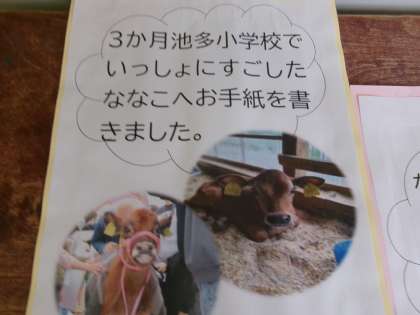 3か月池多小学校で
いっしょにすごした
ななこへお手紙を書
きました。